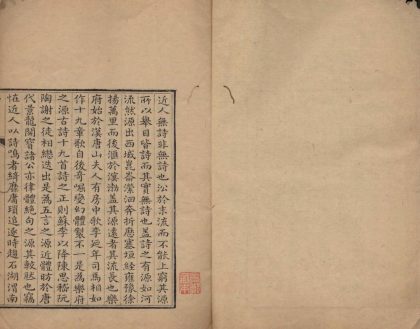 近人無詩非無詩也沿於末流而不能上窮其源
所以舉目皆詩而其實無詩也蓋詩之有源如河
流然源出西域崑崙潔洄奔折歷塞垣經雍豫徐
揚萬里而後滙於瀛渤蓋其源遠者其流長也樂
府始於漢唐山夫人有房中歌李延年司馬相如
作十九章歌自後奇嶇變幻體製不一是為樂府
之源古詩十九首詩之正則蘇李以降陳思嵇阮
陶謝之徒相繼迭出是為五言之源近體昉於唐
代景龍開寶諸公亦律體絕句之源其較然也竊
怪近人以詩鳴者綺靡庸瑣追逐時趨石湖渭南